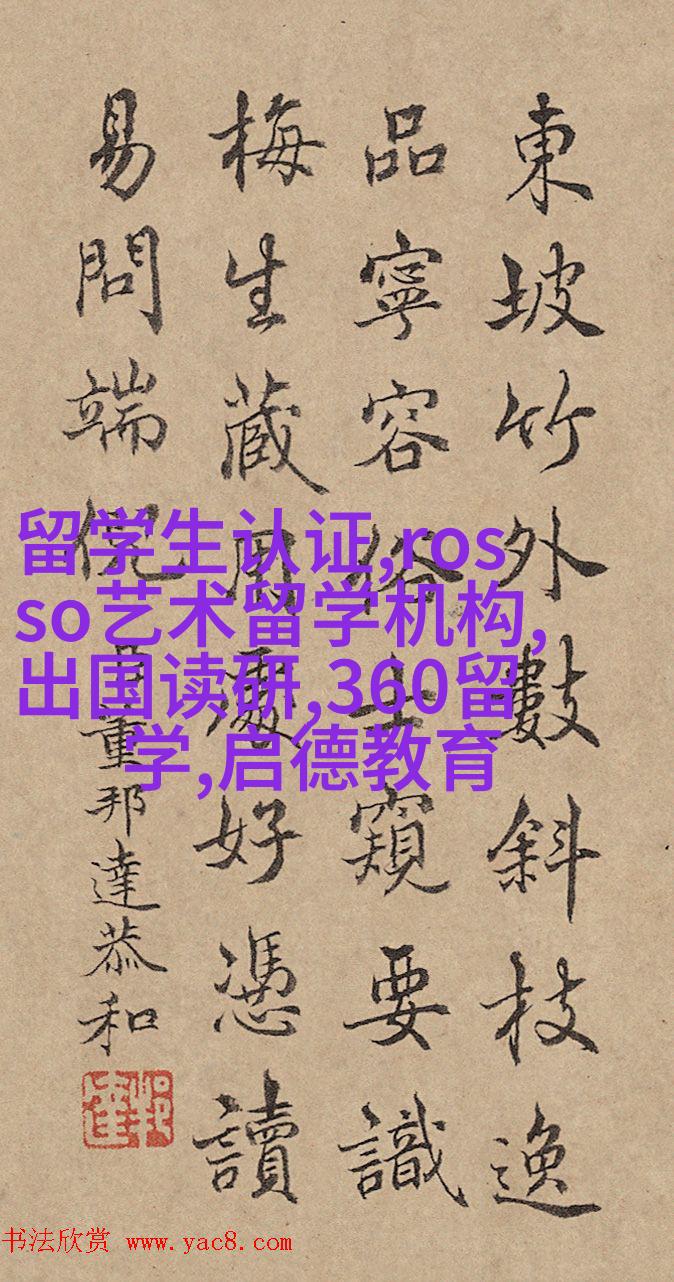 東坡竹外數斜枝逸
品寧容俗士窺要識
梅生藏用處好憑讀
易問端倪 臣董邦達恭和
留学生认证,ros
so艺术留学机构,
出国读研,360留
学,启德教育
书法欣赏 www.yac8.com